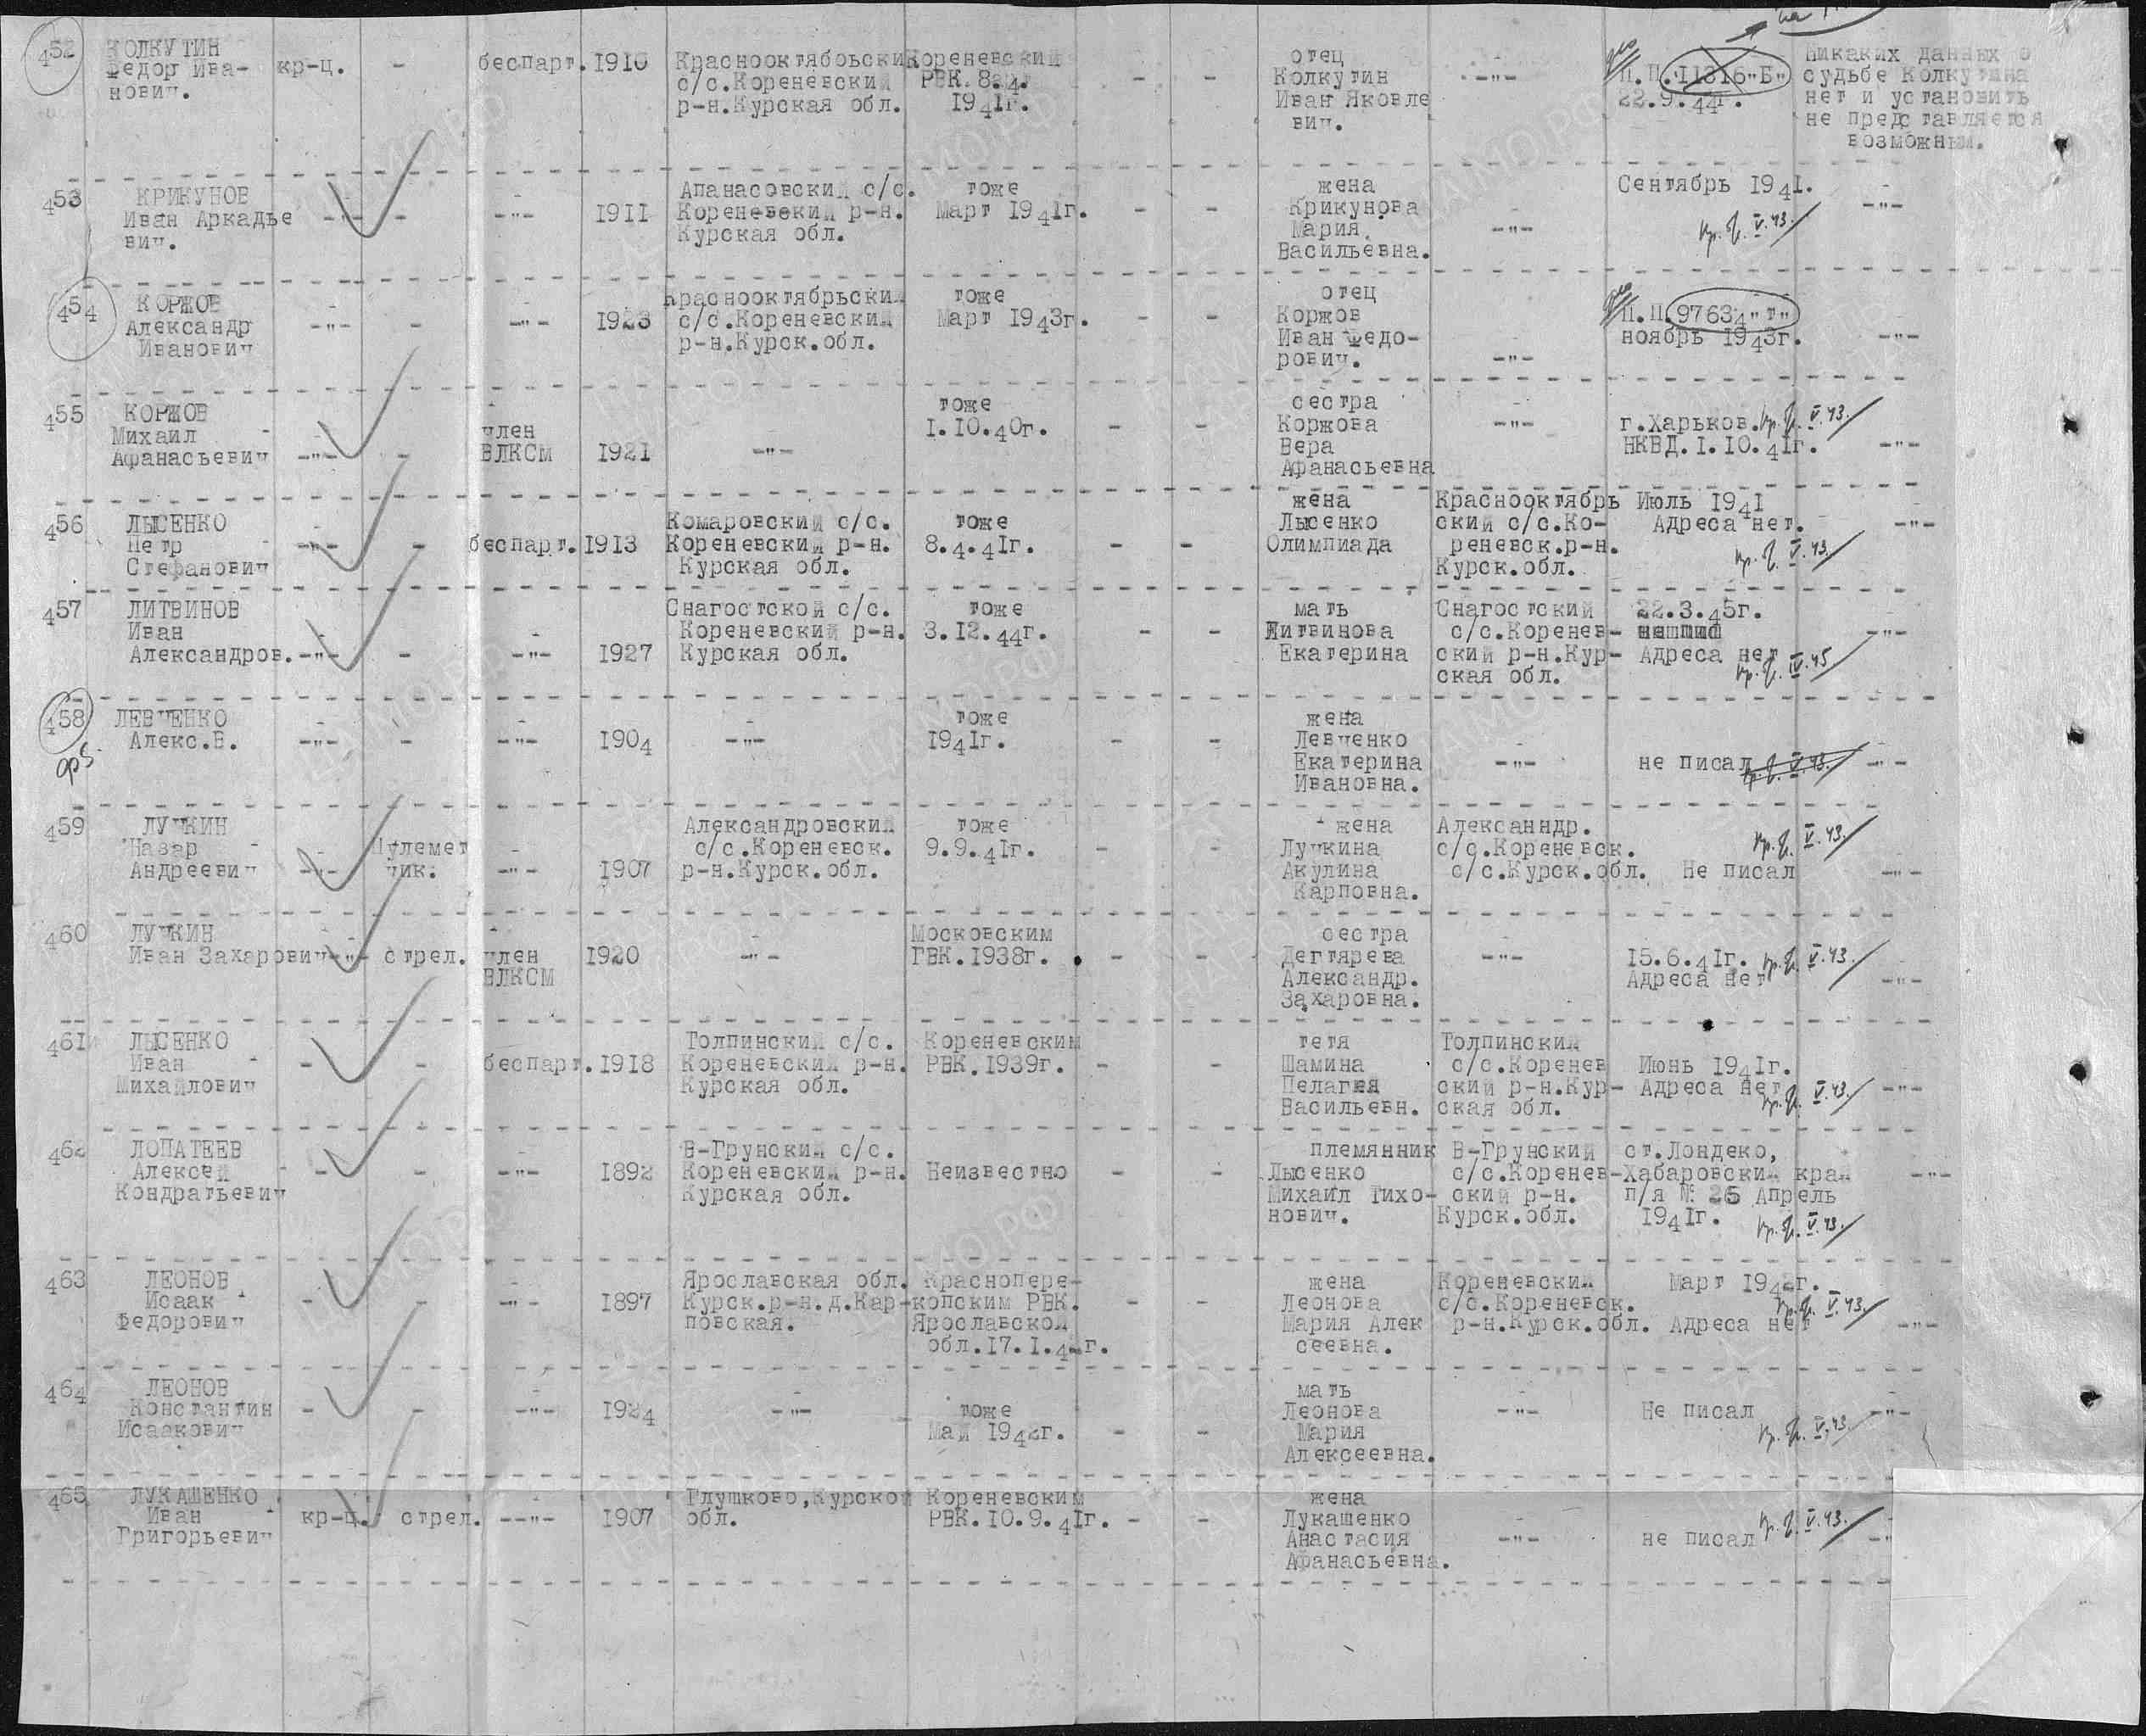 452 КОЛКУТИН Федор Ива-нович. кр-ц. - беспарт. 1910 Краснооктябоьский с/с.Кореневский р-н.Курская обл. Кореневский РВК. 1941г. - - отец Колкутин Иван Яковле вич. -"- П.П. 11316"Б" 22.9.44г. Никаких данных о судьбе Колкутина нет и установить не представляется возможным.
453 КРИКУНОВ Иван Аркадье вич. -"- - -"- 1911 Апанасовский с/с. Кореневский р-н. Курская обл. тоже Март 1941г. - - жена Крикунова Мария Васильевна. -"- Сентябрь 1941. пр. V.43. -"-
454 КОРЖОВ Александр Иванович -"- - -"- 1923 Краснооктябрьский с/с.Кореневский р-н.Курск.обл. тоже Март 1943г. - - отец Коржов Иван Федо-рович. -"- П.П.97634"т" ноябрь 1943г. -"-
455 КОРЖОВ Михаил Афанасьевич -"- - член ВЛКСМ 1921 -"- тоже 1.10.40г. - - сестра Коржова Вера Афанасьевна -"- г.Харьков. НКВД.1.10.41г. V.43. -"-
456 ЛЫСЕНКО Петр Стефанович -"- - беспарт. 1913 Комаровский с/с. Кореневский р-н. Курская обл. тоже 8.4.41г. - - жена Лысенко Олимпиада Краснооктябрь ский с/с.Ко-реневск.р-н. Курск.обл. Июль 1941 Адреса нет. V.43. -"-
457 ЛИТВИНОВ Иван Александров. -"- - -"- 1927 Снагостской с/с. Кореневский р-н. Курская обл. тоже 3.12.44г. - - мать Литвинова Екатерина Снагостский с/с.Коренев-ский р-н.Кур-ская обл. 22.3.45г. Адреса нет 45 -"-
458 ЛЕВЧЕНКО Алекс.В. -"- - -"- 1904 -"- тоже 1941г. - - жена Левченко Екатерина Ивановна. -"- не писал V.43. -"-
459 ЛУЧКИН Назар Андреевич -"- Пулемет чик. -"- 1907 Александровский с/с.Кореневск. р-н.Курск.обл. тоже 9.9.41г. - - жена Лучкина Акулина Карповна. Алексанндр. с/с.Кореневск. с/с.Курск.обл. Не писал V.43. -"-
460 ЛУЧКИН Иван Захарович -"- стрел. член ВЛКСМ 1920 -"- Московским ГВК.1938г. - - сестра Дегтярева Александр. Захаровна. -"- 15.6.41г. Адреса нет V.43. -"-
461 ЛЫСЕНКО Иван Михайлович - - беспарт. 1918 Толпинский с/с. Кореневский р-н. Курская обл. Кореневским РВК.1939г. - - тетя Шамина Пелагея Васильевн. Толпинский с/с.Коренев ский р-н.Кур-ская обл. Июнь 1941г. Адреса нет V.43. -"-
462 ЛОПАТЕЕВ Алексей Кондратьевич - - -"- 1892 В-Грунский с/с. Кореневский р-н. Курская обл. Неизвестно - - племянник Лысенко Михаил Тихо-нович. В-Грунский с/с.Коренев-ский р-н. Курск.обл. ст.Лондеко, Хабаровский край п/я № 26 Апрель 1941г. V.43. -"-
463 ЛЕОНОВ Исаак Федорович - - -"- 1897 Ярославская обл. Курск.р-н.д.Кар-повская. Краснопере-копским РВК. Ярославской обл.17.1.42г. - - жена Леонова Мария Алек сеевна. Кореневский с/с.Кореневск. р-н.Курск.обл. Март 1942г. Адреса нет V.43. -"-
464 ЛЕОНОВ Константин Исаакович - - -"- 1924 -"- тоже Май 1942г. - - мать Леонова Мария Алексеевна. -"- Не писал V.43. -"-
465 ЛУКАШЕНКО Иван Григорьевич кр-ц. стрел. -"- 1907 Глушково,Курской обл. Кореневским РВК.10.9.41г. - - жена Лукашенко Анастасия Афанасьевна. -"- не писал V.43.